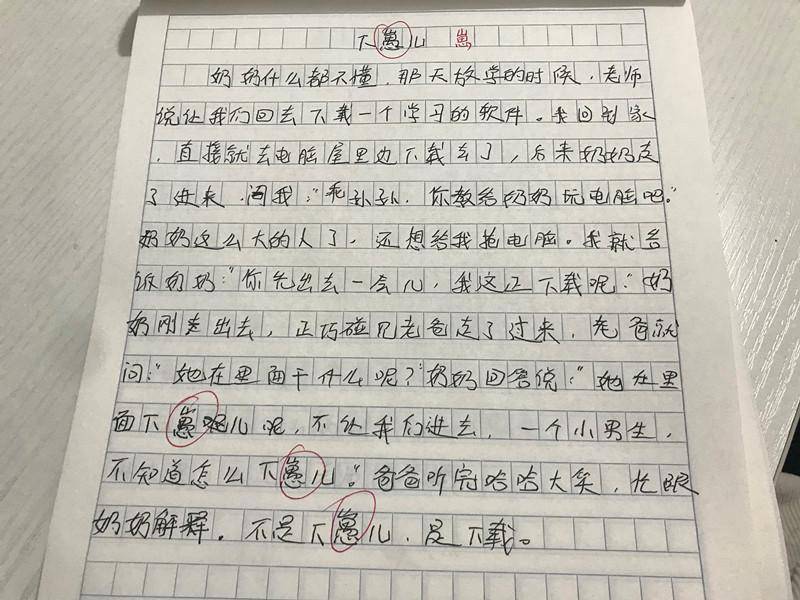 下崽儿 崽
奶奶什么都不懂，那天放学的时候，老师
说让我们回去下载一个学习的软件。我回到家
，直接就去电脑屋里边下载去了，后来奶奶走
了进来，问我："乖孙孙，你教给奶奶玩电脑吧。"
奶奶这么大的人了，还想给我抢电脑。我就告
饭奶奶："你先出去一会儿，我这正下载呢。"奶
奶刚走出去，正巧碰见老爸走了过来，老爸就
问："她在里面干什么呢？"奶奶回答说："她在里
面下崽呢儿呢，不让我们进去，一个小男生，
不知道怎么下崽儿。"爸爸听完哈哈大笑，忙跟
奶奶解释，不是下崽儿，是下载。